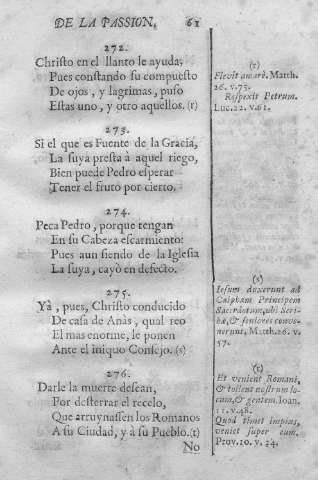 DE LA PASSION. 61
272.
Christo en el llanto le ayuda,
Pues constando su compuesto
De ojos, y lagrimas, puso
Estas uno, y otro aquellos. (r)
273.
Si el que es Fuente de la Gracia,
La suya presta à aquel riego,
Bien puede Pedro esperar
Tener el fruto por cierto.
274.
Peca Pedro, porque tengan
En su Cabeza escarmiento:
Pues aun siendo de la Iglesia
La suya, cayò en defecto.
275.
Yà, pues, Christo conducido
De casa de Anàs, qual reo
El mas enorme, le ponen
Ante el iniquo Consejo. (s)
276.
Darle la muerte desean,
Por desterrar el recelo,
Que arruynassen los Romanos
A su Ciudad, y à su Pueblo. (t)
No
(r)
Flevit amarè. Matth.
26. v. 75.
Respexit Petrum.
Luc. 22. v. 61.
(s)
Iesum duxerunt ad
Caipham Principem
Sacerdotum, ubi Scri-
bæ, & seniores conve-
nerunt, Matth. 26. v.
57.
(t)
Et venient Romani,
& tollent nostrum lo-
cum, & gentem. Ioan.
11. v. 48.
Quod timet impius,
veniet super eum.
Prov. 10. v. 24.